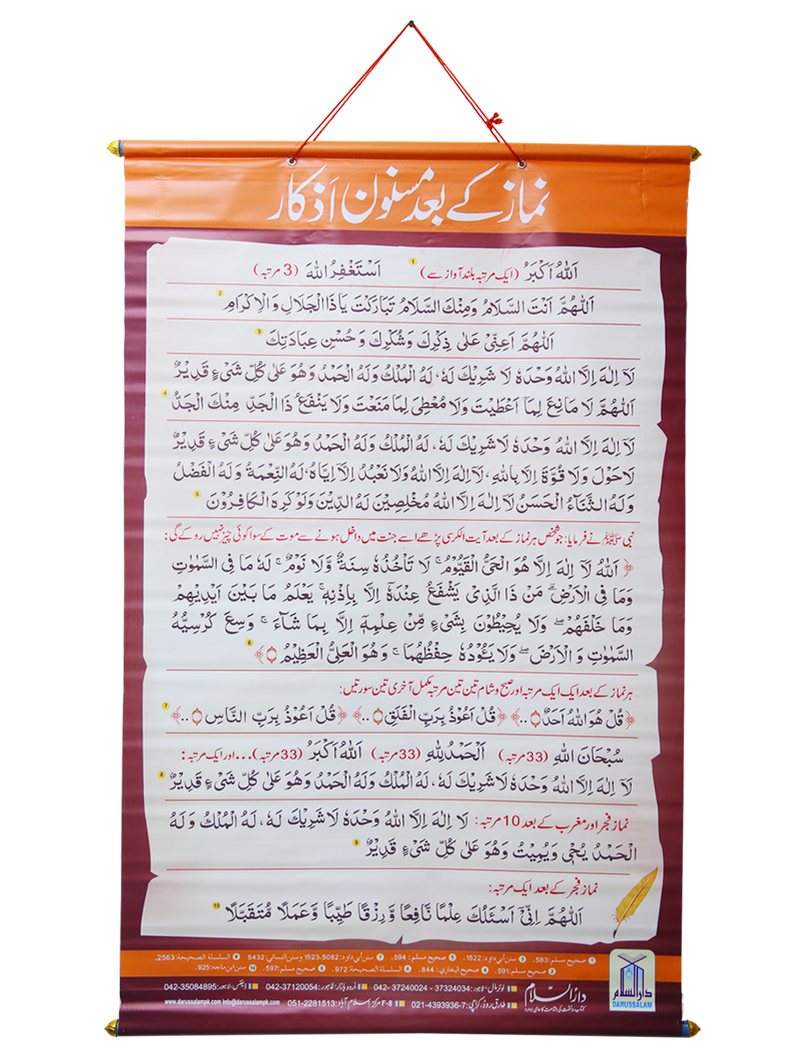 نماز کے بعد مسنون اَذکار
اَللّٰهُ اَكْبَرُ (ایک مرتبہ بلند آواز سے) 1 اَسْتَغْفِرُ اللّٰهَ (3 مرتبہ)
اَللّٰهُمَّ اَنْتَ السَّلَامُ وَمِنْكَ السَّلَامُ تَبَارَكْتَ يَا ذَا الْجَلَالِ وَالْاِكْرَامِ 2
اَللّٰهُمَّ اَعِنِّيْ عَلٰى ذِكْرِكَ وَشُكْرِكَ وَحُسْنِ عِبَادَتِكَ 3
لَآ اِلٰهَ اِلَّا اللّٰهُ وَحْدَهٗ لَا شَرِيْكَ لَهٗ، لَهُ الْمُلْكُ وَلَهُ الْحَمْدُ وَهُوَ عَلٰى كُلِّ شَيْءٍ قَدِيْرٌ
اَللّٰهُمَّ لَا مَانِعَ لِمَا اَعْطَيْتَ وَلَا مُعْطِيَ لِمَا مَنَعْتَ وَلَا يَنْفَعُ ذَا الْجَدِّ مِنْكَ الْجَدُّ 4
لَآ اِلٰهَ اِلَّا اللّٰهُ وَحْدَهٗ لَا شَرِيْكَ لَهٗ، لَهُ الْمُلْكُ وَلَهُ الْحَمْدُ وَهُوَ عَلٰى كُلِّ شَيْءٍ قَدِيْرٌ
لَا حَوْلَ وَلَا قُوَّةَ اِلَّا بِاللّٰهِ، لَا اِلٰهَ اِلَّا اللّٰهُ وَلَا نَعْبُدُ اِلَّا اِيَّاهُ، لَهُ النِّعْمَةُ وَلَهُ الْفَضْلُ
وَلَهُ الثَّنَاءُ الْحَسَنُ لَا اِلٰهَ اِلَّا اللّٰهُ مُخْلِصِيْنَ لَهُ الدِّيْنَ وَلَوْ كَرِهَ الْكَافِرُوْنَ 5
نبی ﷺ نے فرمایا: جو شخص ہر نماز کے بعد آیت الکرسی پڑھے اسے جنت میں داخل ہونے سے موت کے سوا کوئی چیز نہیں روکے گی:
﴿ اَللّٰهُ لَآ اِلٰهَ اِلَّا هُوَ الْحَيُّ الْقَيُّوْمُ ۚ لَا تَاْخُذُهٗ سِنَةٌ وَّلَا نَوْمٌ ۭ لَهٗ مَا فِي السَّمٰوٰتِ
وَمَا فِي الْاَرْضِ ۭ مَنْ ذَا الَّذِيْ يَشْفَعُ عِنْدَهٗٓ اِلَّا بِاِذْنِهٖ ۭ يَعْلَمُ مَا بَيْنَ اَيْدِيْهِمْ
وَمَا خَلْفَهُمْ ۚ وَلَا يُحِيْطُوْنَ بِشَيْءٍ مِّنْ عِلْمِهٖٓ اِلَّا بِمَا شَآءَ ۚ وَسِعَ كُرْسِيُّهُ
السَّمٰوٰتِ وَالْاَرْضَ ۚ وَلَا يَـُٔوْدُهٗ حِفْظُهُمَا ۚ وَهُوَ الْعَلِيُّ الْعَظِيْمُ ﴾ 6
ہر نماز کے بعد ایک ایک مرتبہ اور صبح و شام تین تین مرتبہ مکمل آخری تین سورتیں:
﴿ قُلْ هُوَ اللّٰهُ اَحَدٌ ..﴾ ﴿ قُلْ اَعُوْذُ بِرَبِّ الْفَلَقِ ..﴾ ﴿ قُلْ اَعُوْذُ بِرَبِّ النَّاسِ ..﴾ 7
سُبْحَانَ اللّٰهِ (33 مرتبہ) اَلْحَمْدُ لِلّٰهِ (33 مرتبہ) اَللّٰهُ اَكْبَرُ (33 مرتبہ)... اور ایک مرتبہ:
لَآ اِلٰهَ اِلَّا اللّٰهُ وَحْدَهٗ لَا شَرِيْكَ لَهٗ، لَهُ الْمُلْكُ وَلَهُ الْحَمْدُ وَهُوَ عَلٰى كُلِّ شَيْءٍ قَدِيْرٌ 8
نماز فجر اور مغرب کے بعد 10 مرتبہ: لَا اِلٰهَ اِلَّا اللّٰهُ وَحْدَهٗ لَا شَرِيْكَ لَهٗ، لَهُ الْمُلْكُ وَلَهُ
الْحَمْدُ يُحْيِ وَيُمِيْتُ وَهُوَ عَلٰى كُلِّ شَيْءٍ قَدِيْرٌ 9
نماز فجر کے بعد ایک مرتبہ:
اَللّٰهُمَّ اِنِّيْ اَسْئَلُكَ عِلْمًا نَافِعًا وَّرِزْقًا طَيِّبًا وَّعَمَلًا مُّتَقَبَّلًا 10
1 صحيح مسلم: 583. 3 سنن أبي داود: 1522. 5 صحيح مسلم: 594. 7 سنن أبي داود: 1523، 5082 و سنن النسائي: 5432 9 السلسلة الصحيحة: 2563.
2 صحيح مسلم: 591. 4 صحيح البخاري: 844. 6 السلسلة الصحيحة: 972. 8 صحيح مسلم: 597. 10 سنن ابن ماجه: 925.
دارالسلام
لوئرمال، لاہور: 37324034 - 37240024 -042 اُردو بازار لاہور: 37120054-042 ڈیفنس، لاہور: 35084895-042
کتاب و سنت کی اشاعت کا عالمی ادارہ
طارق روڈ، کراچی: 7-4393936-021 F-8 مرکز اسلام آباد: 2281513-051 www.darussalampk.com info@darussalampk.com
دارالسلام
DARUSSALAM